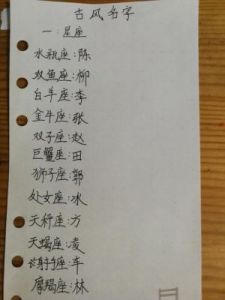 古风名字
一:星座
水瓶座:陈
双鱼座:柳
白羊座:李
金牛座:张
双子座:赵
巨蟹座:田
狮子座:郭
处女座:水
天秤座:方
天蝎座:凌
射手座:车
摩羯座:林